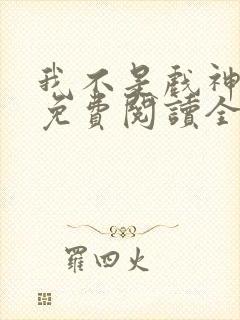 我不是戲神
免費閱讀全
羅四火